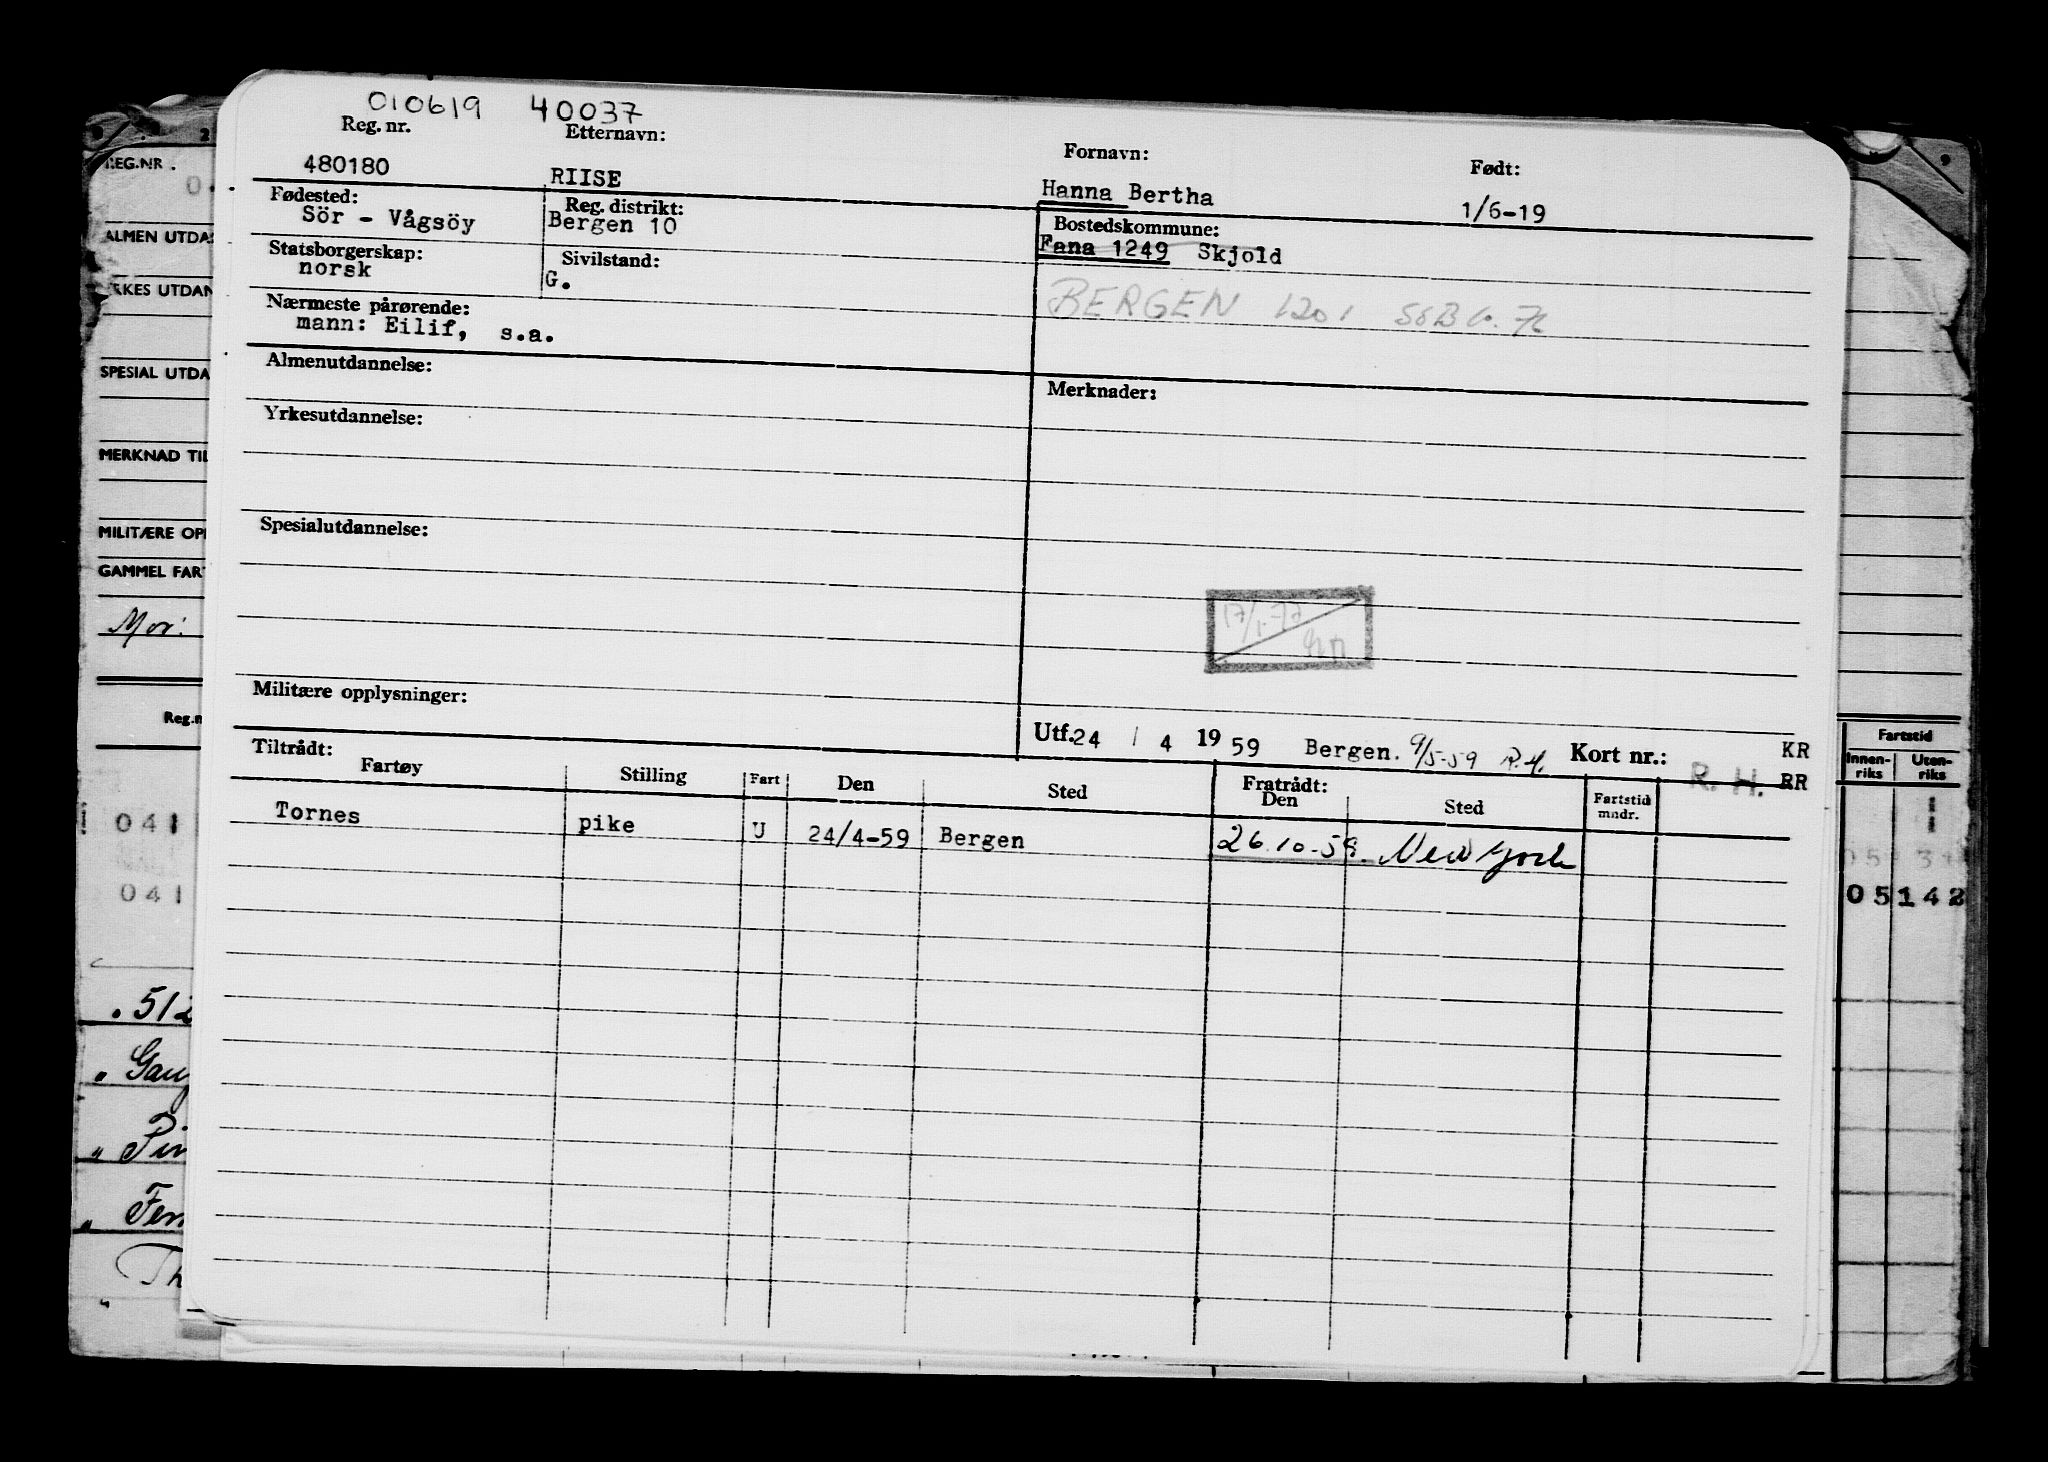 010619 40037
Reg. nr. Etternavn: Fornavn: Født:
480180 RIISE Hanna Bertha 1/6-19
Fødested: Reg. distrikt: Bostedskommune:
Sör - Vågsöy Bergen 10 Fana 1249 Skjold
Statsborgerskap: Sivilstand:
norsk G.
BERGEN 1201
Nærmeste pårørende:
mann: Eilif, s.a.
Almenutdannelse: Merknader:
Yrkesutdannelse:
Spesialutdannelse:
17/1-77
Militære opplysninger:
Utf. 24 / 4 1959 Bergen. 9/5-59 R.H. Kort nr.: KR
R. H. RR
Tiltrådt: Fratrådt:
Fartøy Stilling Fart Den Sted Den Sted Fartstid mndr.
Tornes pike U 24/4-59 Bergen 26.10-59. New York
REG.NR.
0.
ALMEN UTDA
RKES UTDAN
SPESIAL UTDA
MERKNAD TIL
MILITÆRE OPP
GAMMEL FAR
Mor:
Reg.n
041
041
. 512
" Gau
" Pin
" Fer
Th
"
Fartstid
Innen-riks Uten-riks
05 142